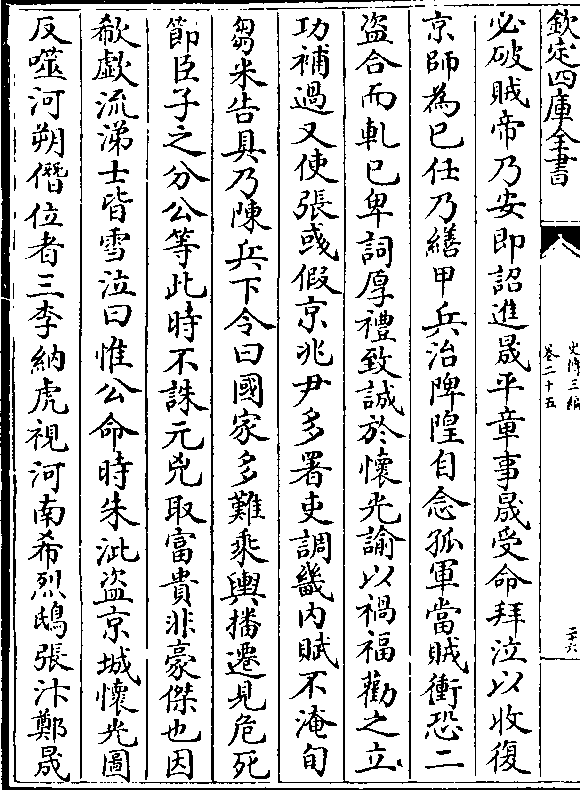 欽定四庫全書
史傳三編
卷二十五
三六
必破賊帝乃安即詔進晟平章事晟受命拜泣以收復
京師為已任乃繕甲兵治陴隍自念孤軍當賊衝恐二
盗合而軋已卑詞厚禮致誠於懷光諭以禍福勸之立
功補過又使張彧假京兆尹多署吏調畿內賦不淹旬
芻米告具乃陳兵下令曰國家多難乘輿播遷見危死
節臣子之分公等此時不誅元兇取富貴非豪傑也因
欷歔流涕士皆雪泣曰惟公命時朱泚盗京城懷光圖
反噬河朔僭位者三李納虎視河南希烈鴟張汴鄭晟